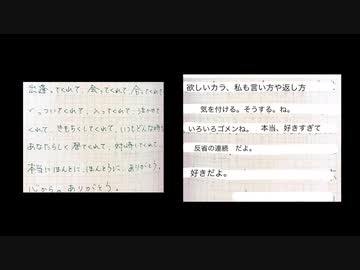 出逢ってくれて、会ってくれて、合ってくれて
くっついてくれて、入ってくれて、泣かせて
くれて、きもちくしてくれて、いつもどんな時も
あなたらしく居てくれて、対峙してくれて、
本当にほんとに、ほんとうに、ありがとう。
心から。ありがとう。
欲しいカラ、私も言い方や返し方
気を付ける。そうする。ね。
いろいろゴメンね。 本当、好きすぎて
反省の連続 だよ。
好きだよ。